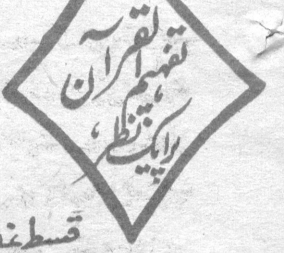 تفہیم القرآن
پر ایک نظر
قسط